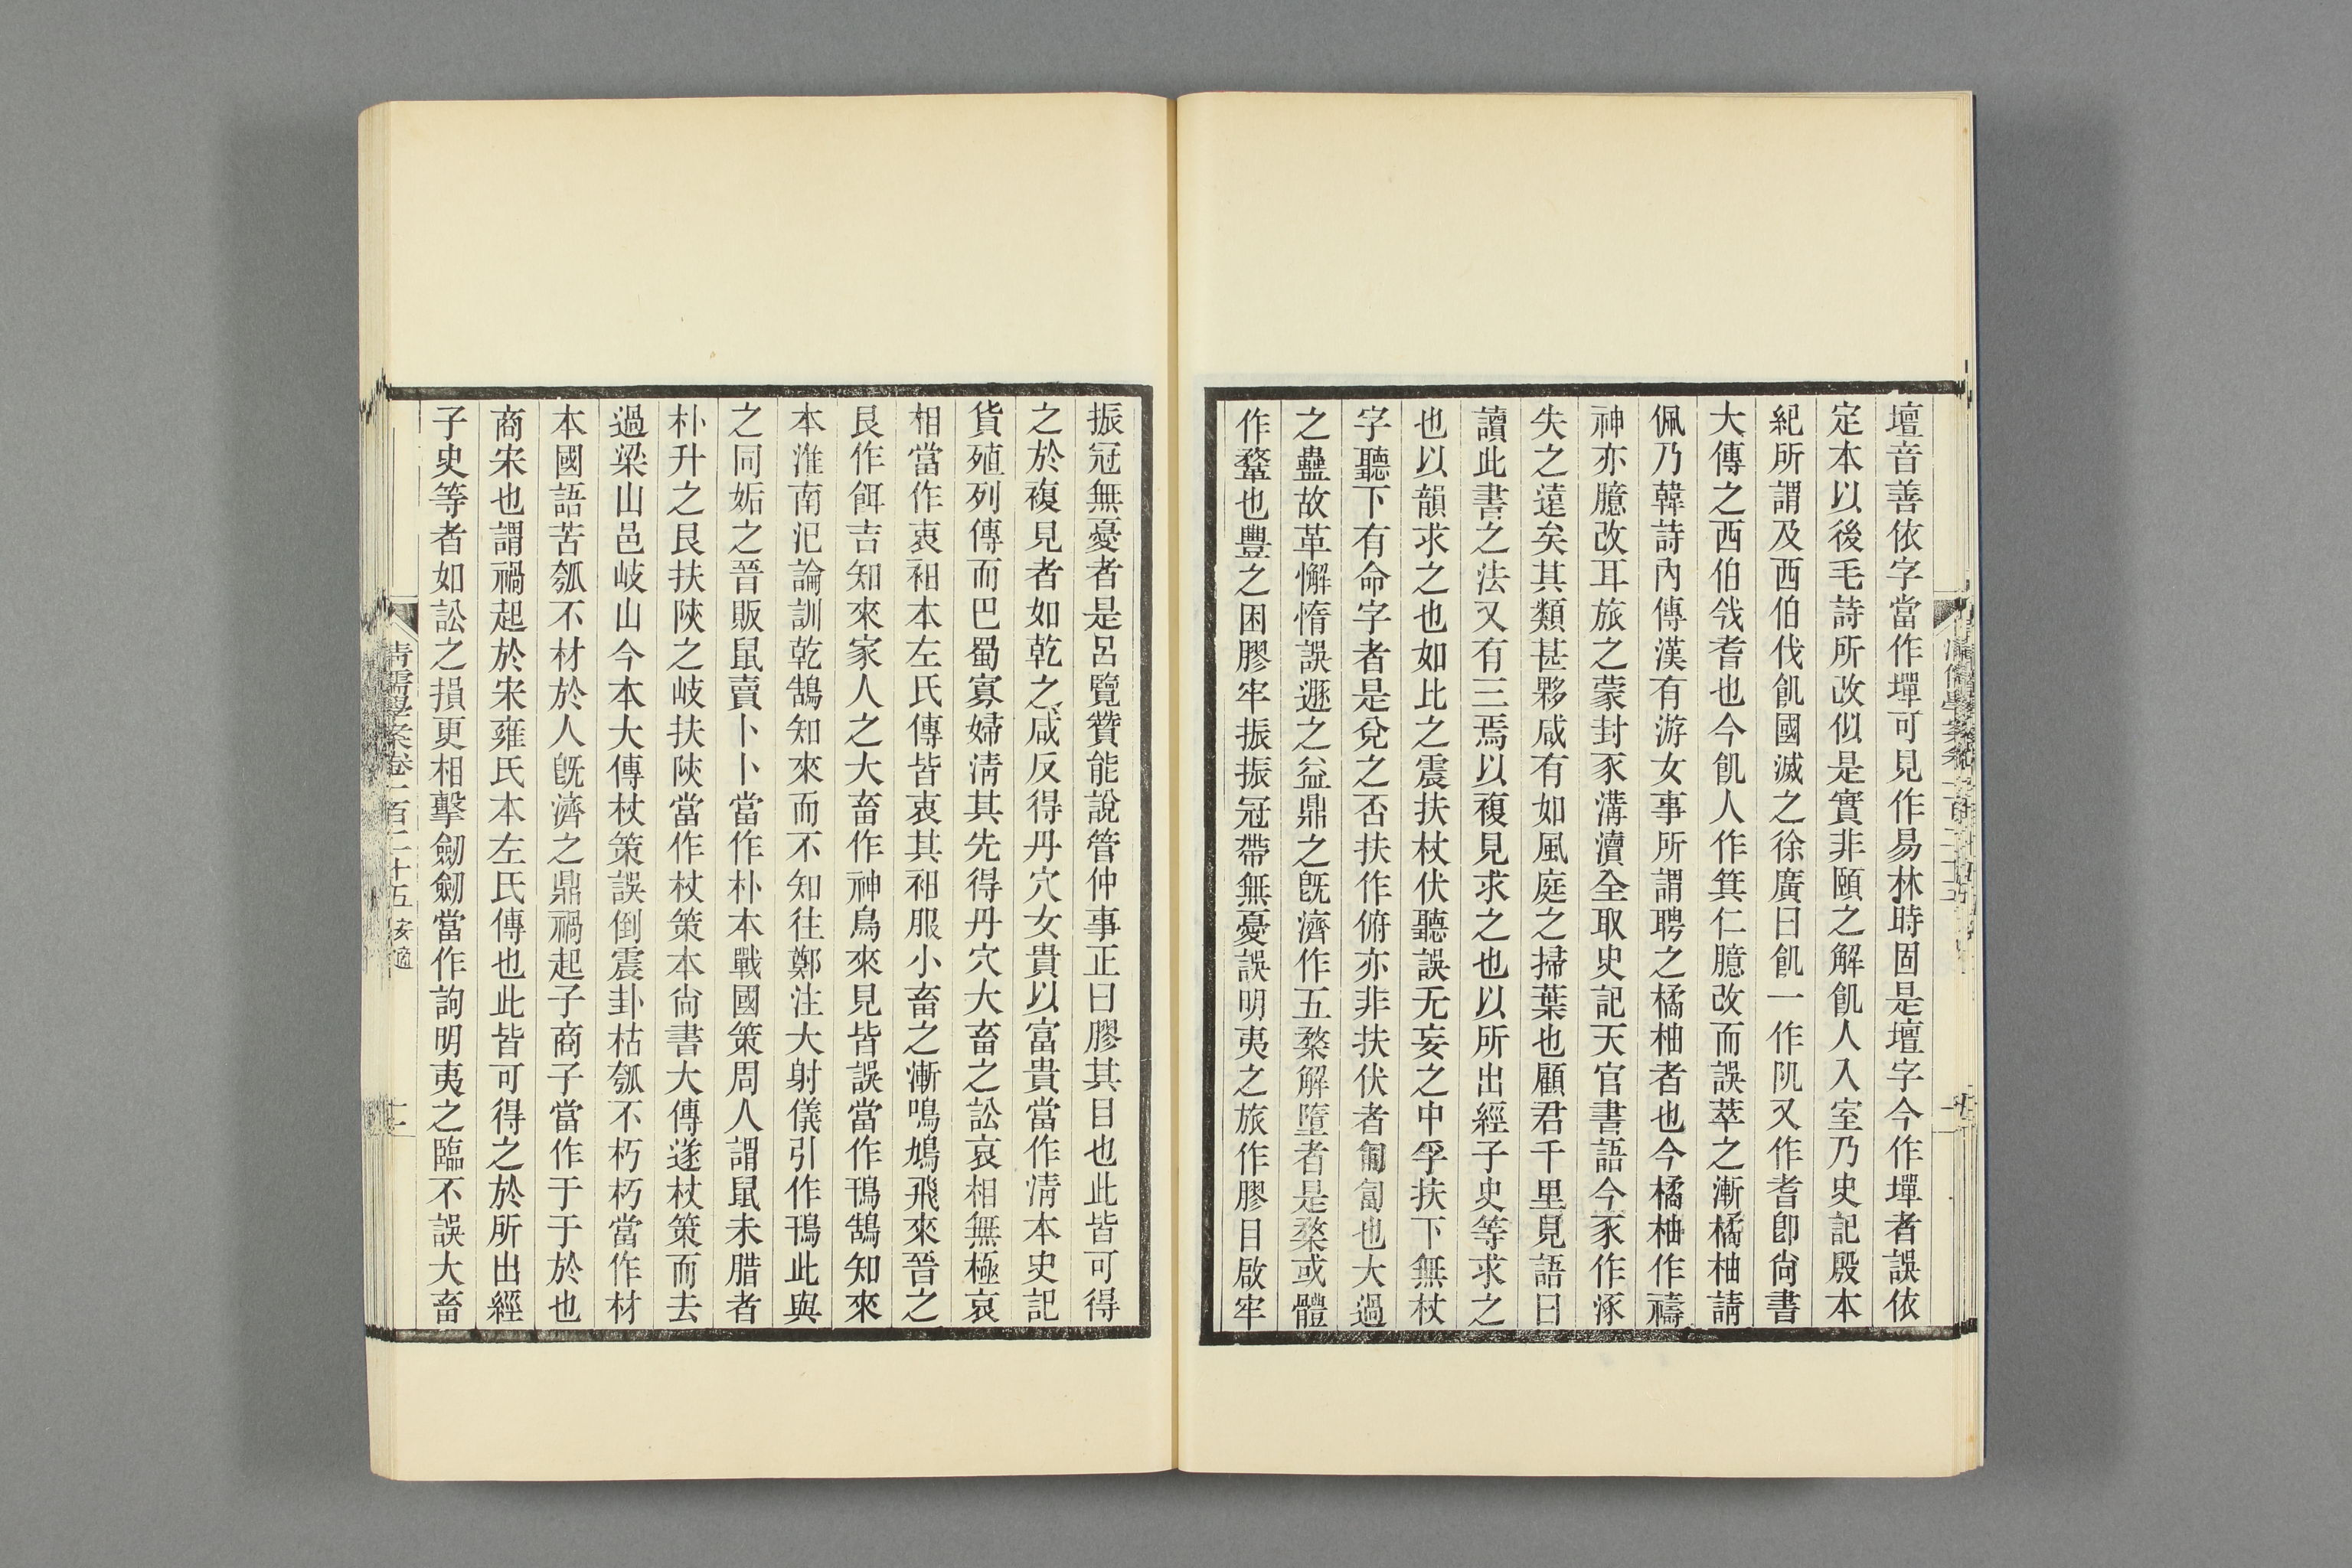 壇音善依字當作墠可見作易林時固是壇字今作墠者誤依
定本以後毛詩所改似是實非頤之解飢人入室乃史記殷本
紀所謂及西伯伐飢國滅之徐廣曰飢一作阢又作耆卽尙書
大傳之西伯戗耆也今飢人作箕仁臆改而誤萃之漸橘柚請
佩乃韓詩內傳漢有游女事所謂聘之橘柚者也今橘柚作禱
神亦臆改耳旅之蒙封豕溝瀆全取史記天官書語今豕作涿
失之遠矣其類甚夥咸有如風庭之掃葉也顧君千里見語曰
讀此書之法又有三焉以複見求之也以所出經子史等求之
也以韻求之也如比之震扶杖伏聽誤无妄之中孚扶下無杖
字聽下有命字者是兌之否扶作俯亦非扶伏者匍匐也大過
之蠱故革懈惰誤遯之益鼎之旣濟作五楘解墮者是楘或體
作鞪也豐之困膠牢振振冠帶無憂誤明夷之旅作膠目啟牢
振冠無憂者是呂覽贊能說管仲事正曰膠其目也此皆可得
之於複見者如乾之咸反得丹穴女貴以富貴當作淸本史記
貨殖列傳而巴蜀寡婦淸其先得丹穴大畜之訟哀相無極哀
相當作衷衵本左氏傳皆衷其衵服小畜之漸鳴鳩飛來晉之
艮作餌吉知來家人之大畜作神鳥來見皆誤當作鳱鵠知來
本淮南氾論訓乾鵠知來而不知往鄭注大射儀引作鳱此與
之同姤之晉販鼠賣卜卜當作朴本戰國策周人謂鼠未腊者
朴升之艮扶陝之岐扶陝當作杖策本尙書大傳遂杖策而去
過梁山邑岐山今本大傳杖策誤倒震卦枯瓠不朽朽當作材
本國語苦瓠不材於人旣濟之鼎禍起子商子當作于于於也
商宋也謂禍起於宋雍氏本左氏傳也此皆可得之於所出經
子史等者如訟之損更相擊劒劒當作詢明夷之臨不誤大畜
清儒學案卷一百二十五 安適